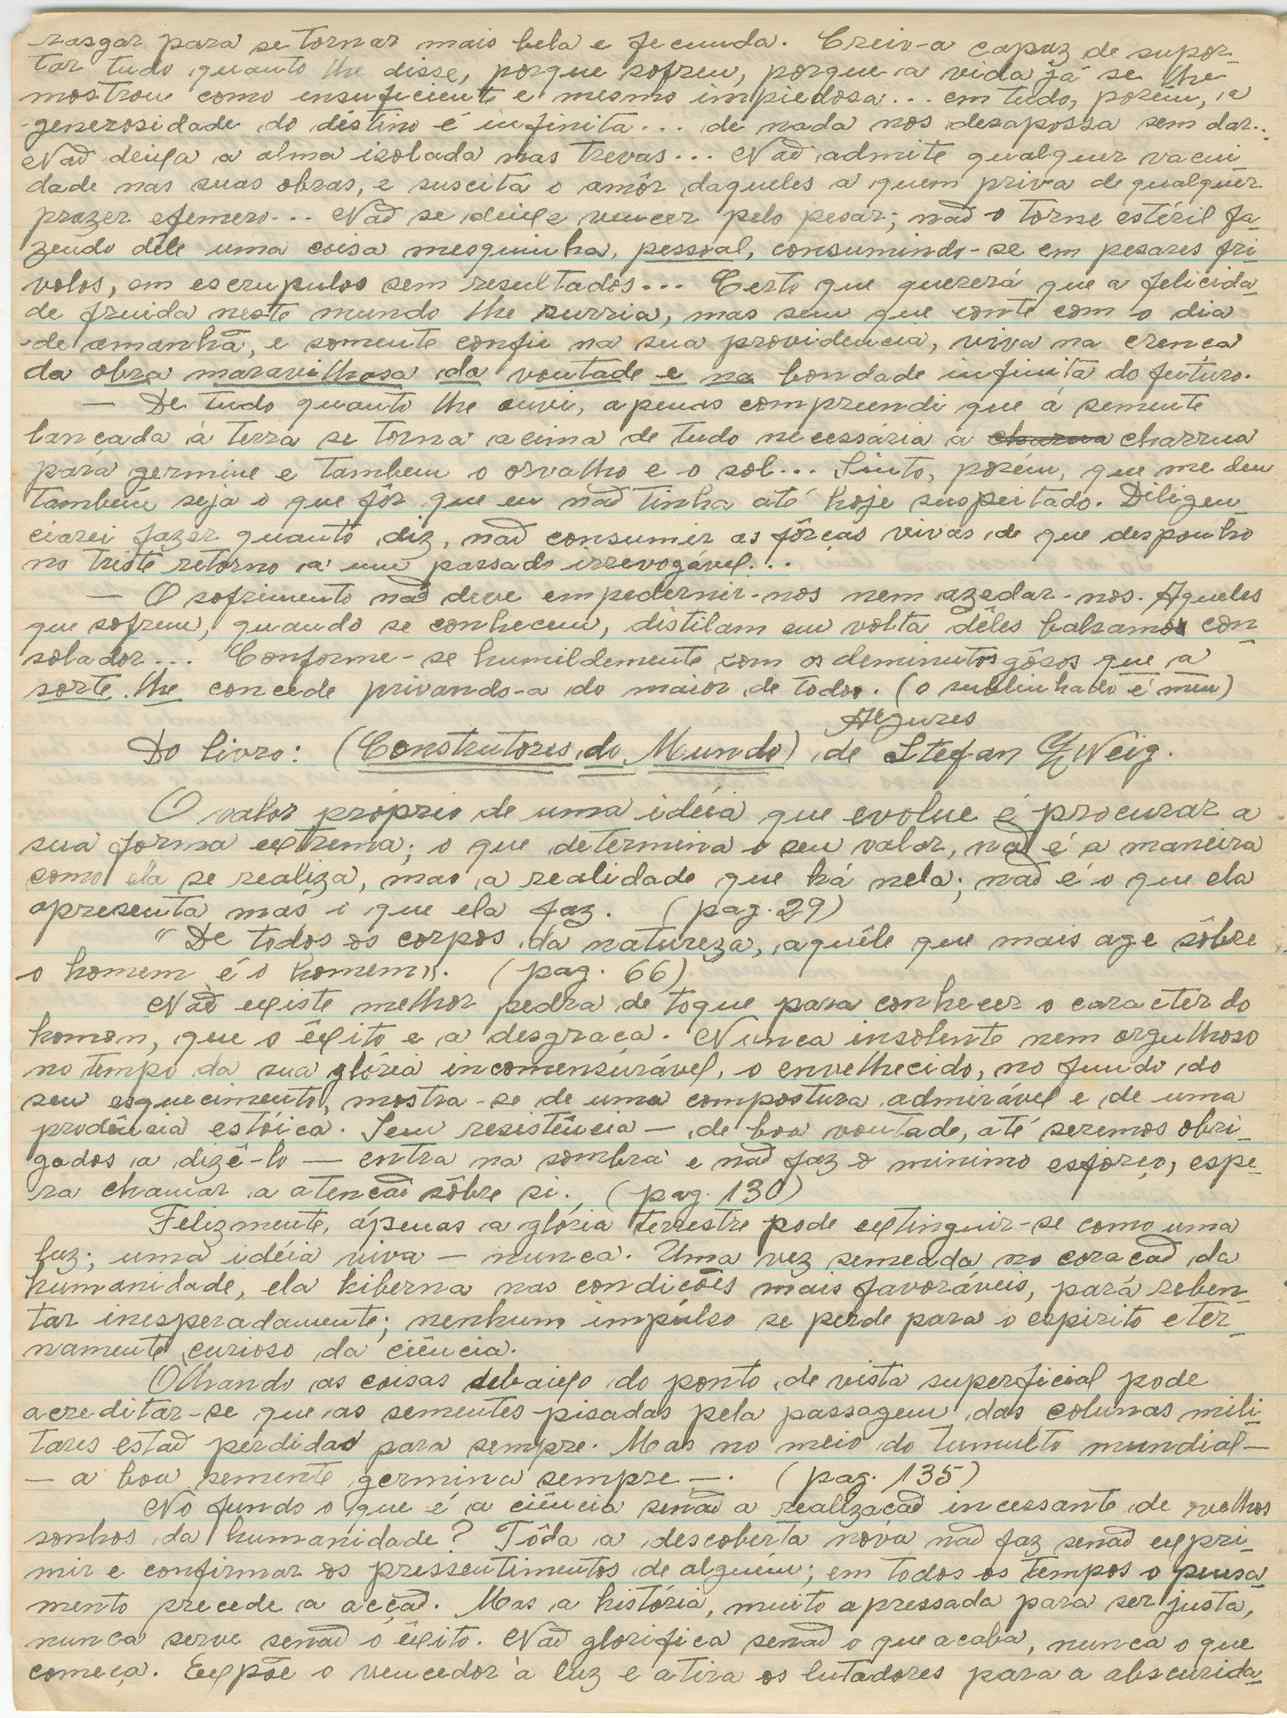 rasgar para se tornar mais bela e fecunda. Creio-a capaz de supor-
tar tudo quanto lhe disse, porque sofreu, porque a vida já se lhe
mostrou como insuficiente e mesmo impiedosa... em tudo, porém, a
generosidade do destino é infinita... de nada nos desapossa sem dar...
Não deixa a alma isolada nas trevas... Não admite qualquer vacui-
dade nas suas obras, e suscita o amôr daqueles a quem priva de qualquer
prazer efemero... Não se deixe vencer pelo pesar; não o torne estéril fa-
zendo dêle uma coisa mesquinha, pessoal, consumindo-se em pesares fri-
volos, em escrupulos sem resultados... Certo que quererá que a felicida-
de fruida neste mundo lhe surria, mas sem que conte com o dia
de amanhã, e somente confie na sua providencia, viva na crença
da obra maravilhosa da vontade e na bondade infinita do futuro.
— De tudo quanto lhe ouvi, apenas compreendi que á semente
lançada á terra se torna acima de tudo necessária a charrua charrua
pará germine e tambem o orvalho e o sol... Sinto, porém, que me deu
tambem seja o que fôr que eu não tinha até hoje suspeitado. Diligen-
ciarei fazer quanto diz, não consumir as fôrças vivas de que desponho
no triste retorno a um passado irrevogável...
— O sofrimento não deve empedernir-nos nem azedar-nos. Aqueles
que sofrem, quando se conhecem, distilam em volta dêles balsamos con-
solador... Conforme-se humildemente com os deminutos gôsos que a
sorte lhe concede privando-a do maior de todos. (o sublinhado é meu)
Algures
Do livro: (Construtores do Mundo) de Stefan Zweig.
O valor próprio de uma idéia que evolue é procurar a
sua forma extrema; o que determina o seu valor, não é a maneira
como ela se realiza, mas a realidade que há nela; não é o que ela
apresenta mas o que ela faz. (pag. 29)
"De todos os corpos da natureza, aquêle que mais age sôbre
o homem é o homem". (pag. 66)
Não existe melhor pedra de toque para conhecer o caracter do
homem, que o êxito e a desgraça. Nunca insolente nem orgulhoso
no tempo da sua glória incomensurável, o envelhecido, no fundo do
seu esquecimento, mostra-se de uma compostura admirável e de uma
prudência estóica. Sem resistência — de boa vontade, até seremos obri-
gados a dizê-lo — entra na sombra e não faz o minimo esforço, espe-
ra chamar a atenção sôbre si. (pag. 130)
Felizmente, ápenas a glória terrestre pode extinguir-se como uma
luz; uma idéia viva — nunca. Uma vez semeada no coração da
humanidade, ela hiberna nas condições mais favoráveis, pará reben-
tar inesperadamente; nenhum impulso se perde para o espirito eter-
namente curioso da ciência.
Olhando as coisas debaixo do ponto de vista superficial pode
acreditar-se que as sementes pisadas pela passagem das colunas mili-
tares estão perdidas para sempre. Mas no meio do tumulto mundial —
— a boa semente germina sempre —. (pag. 135)
No fundo o que é a ciência senão a realização incessante de velhos
sonhos da humanidade? Tôda a descoberta nova não faz senão expri-
mir e confirmar os pressentimentos de alguém; em todos os tempos o pensa-
mento precede a acção. Mas a história, muito apressada para ser justa,
nunca serve senão o êxito. Não glorifica senão o que acaba, nunca o que
começa. Expõe o vencedor á luz e atira os lutadores para a obscurida-